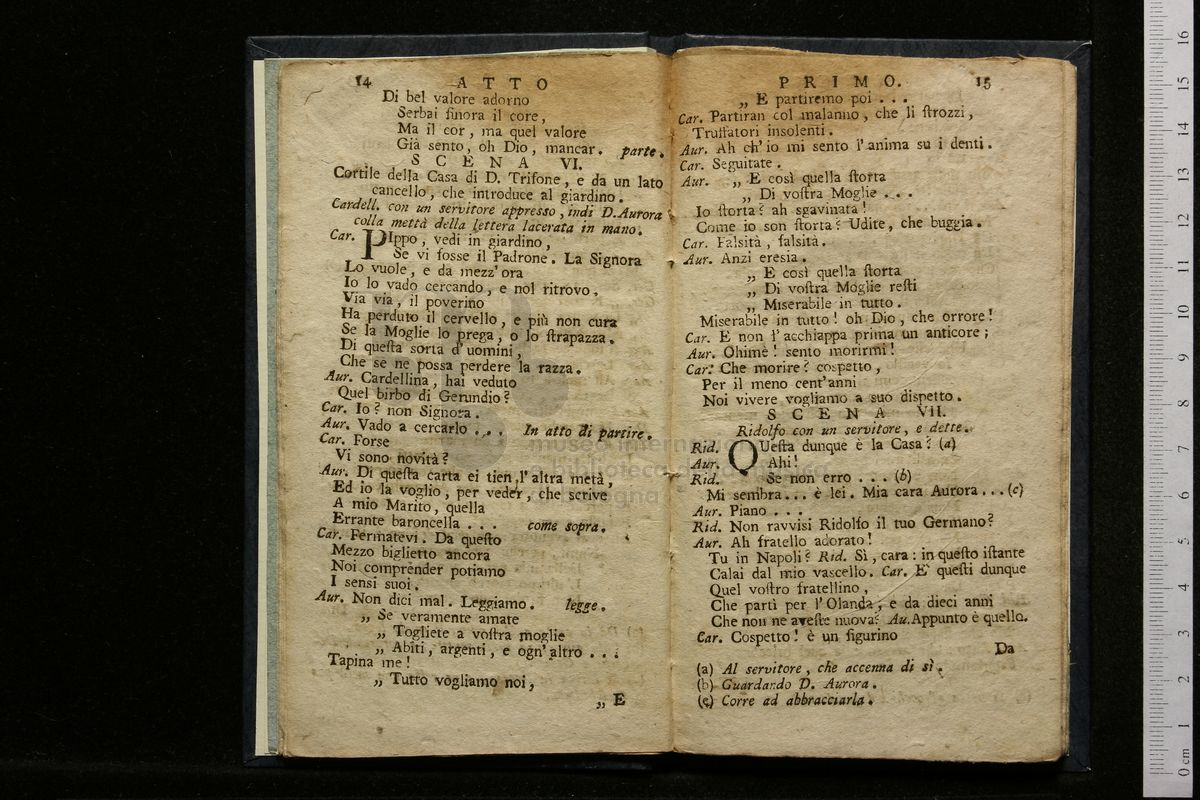 14 ATTO
Di bel valore adorno
Serbai finora il core,
Ma il cor, ma quel valore
Già sento, oh Dio, mancar. parte.
SCENA VI.
Cortile della Casa di D. Trifone, e da un lato
cancello, che introduce al giardino.
Cardell. con un servitore appresso, indi D. Aurora
colla mettà della lettera lacerata in mano.
Car. PIppo, vedi in giardino,
Se vi fosse il Padrone. La Signora
Lo vuole, e da mezz'ora
Io lo vado cercando, e nol ritrovo,
Via via, il poverino
Ha perduto il cervello, e più non cura
Se la Moglie lo prega, o lo strapazza.
Di questa sorta d'uomini,
Che se ne possa perdere la razza.
Aur. Cardellina, hai veduto
Quel birbo di Gerundio?
Car. Io? non Signora.
Aur. Vado a cercarlo ... In atto di partire.
Car. Forse
Vi sono novità?
Aur. Di questa carta ei tien l'altra metà,
Ed io la voglio, per veder, che scrive
A mio Marito, quella
Errante baroncella ... come sopra.
Car. Fermatevi. Da questo
Mezzo biglietto ancora
Noi comprender potiamo
I sensi suoi.
Aur. Non dici mal. Leggiamo. legge.
„ Se veramente amate
„ Togliete a vostra moglie
„ Abiti, argenti, e ogn'altro ...
Tapina me!
„ Tutto vogliamo noi,
„ E
PRIMO. 15
„ E partiremo poi ...
Car. Partiran col malanno, che li strozzi,
Truffatori insolenti.
Aur. Ah ch'io mi sento l'anima su i denti.
Car. Seguitate.
Aur. „ E così quella storta
„ Di vostra Moglie ...
Io storta? ah sgavinata!
Come io son storta? Udite, che buggia.
Car. Falsità, falsità.
Aur. Anzi eresia.
„ E così quella storta
„ Di vostra Moglie resti
„ Miserabile in tutto.
Miserabile in tutto! oh Dio, che orrore!
Car. E non l'acchiappa prima un anticore;
Aur. Ohimè! sento morirmi!
Car. Che morire? cospetto,
Per il meno cent'anni
Noi vivere vogliamo a suo dispetto.
SCENA VII.
Ridolfo con un servitore, e dette.
Rid. QUesta dunque è la Casa? (a)
Aur. Ahi!
Rid. Se non erro ... (b)
Mi sembra... è lei. Mia cara Aurora... (c)
Aur. Piano ...
Rid. Non ravvisi Ridolfo il tuo Germano?
Aur. Ah fratello adorato!
Tu in Napoli? Rid. Sì, cara: in questo istante
Calai dal mio vascello. Car. E' questi dunque
Quel vostro fratellino,
Che partì per l'Olanda, e da dieci anni
Che non ne aveste nuova? Au. Appunto è quello.
Car. Cospetto! è un figurino
Da
(a) Al servitore, che accenna di sì.
(b) Guardando D. Aurora.
(c) Corre ad abbracciarla.